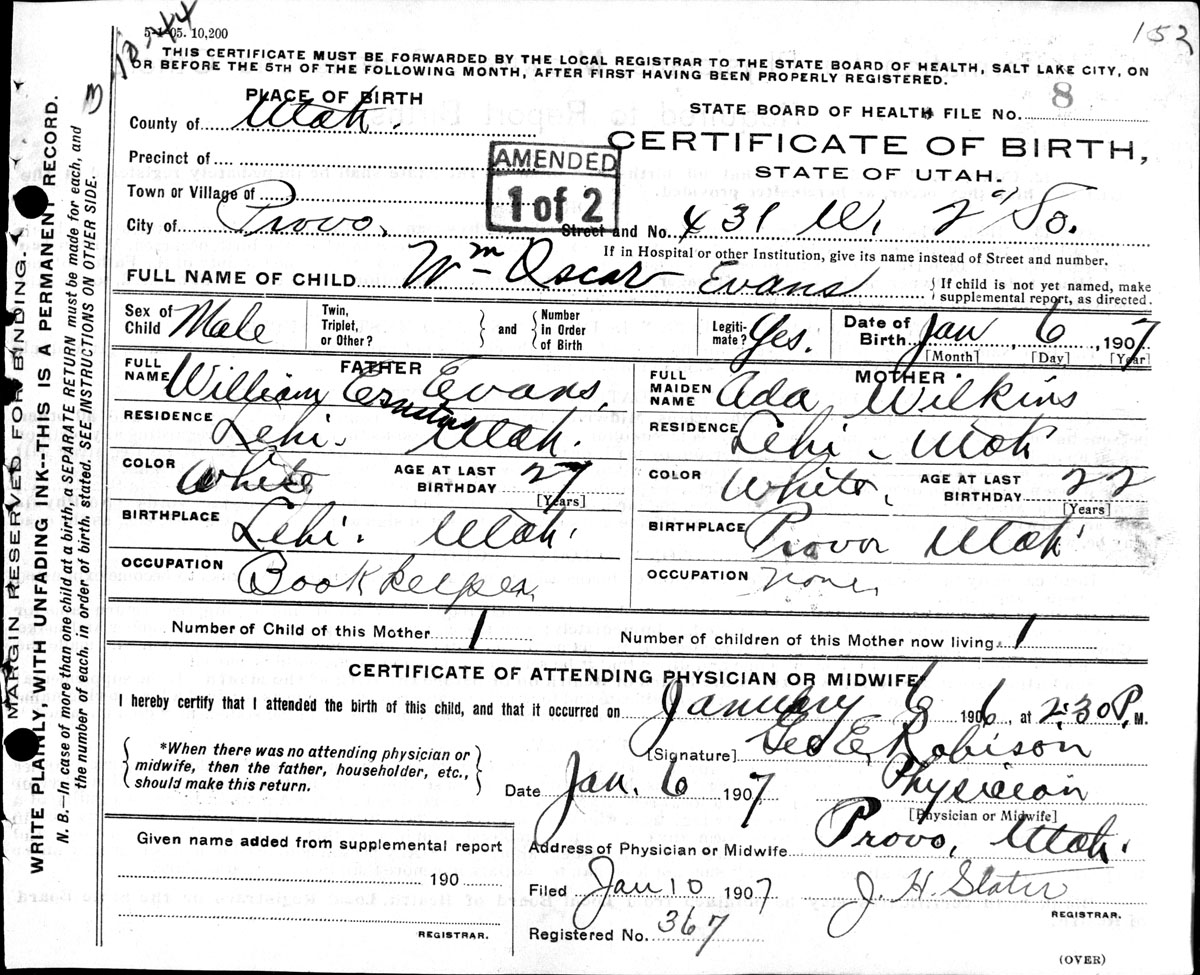 5-1-05. 10,200
10-44
152
THIS CERTIFICATE MUST BE FORWARDED BY THE LOCAL REGISTRAR TO THE STATE BOARD OF HEALTH, SALT LAKE CITY, ON
OR BEFORE THE 5TH OF THE FOLLOWING MONTH, AFTER FIRST HAVING BEEN PROPERLY REGISTERED.
PLACE OF BIRTH
STATE BOARD OF HEALTH FILE NO. 8
County of Utah.
CERTIFICATE OF BIRTH,
Precinct of
AMENDED
STATE OF UTAH.
Town or Village of
1 of 2
City of Provo, Street and No. 431 W. 2nd So.
If in Hospital or other Institution, give its name instead of Street and number.
FULL NAME OF CHILD Wm Oscar Evans
If child is not yet named, make supplemental report, as directed.
Sex of Child Male Twin, Triplet, or Other? and Number in Order of Birth Legitimate? Yes. Date of Birth Jan 6, 1907
[Month] [Day] [Year]
FATHER
FULL NAME William Ernstus Evans,
RESIDENCE Lehi. Utah.
COLOR White AGE AT LAST BIRTHDAY 27
[Years]
BIRTHPLACE Lehi. Utah.
OCCUPATION Bookkeeper,
MOTHER
FULL MAIDEN NAME Ada Wilkins
RESIDENCE Lehi - Utah
COLOR White. AGE AT LAST BIRTHDAY 22
[Years]
BIRTHPLACE Provo Utah
OCCUPATION None,
Number of Child of this Mother 1 Number of children of this Mother now living 1
CERTIFICATE OF ATTENDING PHYSICIAN OR MIDWIFE*
I hereby certify that I attended the birth of this child, and that it occurred on January 6 1906, at 2:30 P. M.
*When there was no attending physician or
midwife, then the father, householder, etc.,
should make this return.
[Signature] Geo E. Robison
Date Jan. 6 1907 Physician
[Physician or Midwife]
Given name added from supplemental report
190
REGISTRAR.
Address of Physician or Midwife Provo, Utah.
Filed Jan 10 1907 J. H. Slater
REGISTRAR.
Registered No. 367
(OVER)
MARGIN RESERVED FOR BINDING.
WRITE PLAINLY, WITH UNFADING INK--THIS IS A PERMANENT RECORD.
N. B.--In case of more than one child at a birth, a SEPARATE RETURN must be made for each, and
the number of each, in order of birth, stated. SEE INSTRUCTIONS ON OTHER SIDE.